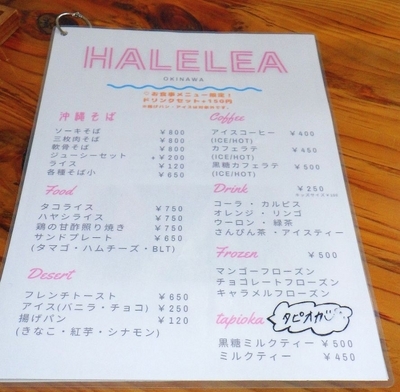 HALELEA
OKINAWA
ドリンクセット+150円
沖縄そば
ソーキそば ¥800
三枚肉そば ¥800
軟骨そば ¥800
ジューシーセット +¥200
ライス ¥120
各種そば小 ¥650
Food
タコライス ¥750
ハヤシライス ¥750
鶏の甘酢照り焼き ¥750
サンドプレート ¥650
(タマゴ・ハムチーズ・BLT)
Desert
フレンチトースト ¥650
アイス(バニラ・チョコ) ¥250
揚げパン ¥120
(きなこ・紅芋・シナモン)
Coffee
アイスコーヒー ¥400
(ICE/HOT)
カフェラテ ¥450
(ICE/HOT)
黒糖カフェラテ ¥500
(ICE/HOT)
Drink ¥250
コーラ・カルピス
オレンジ・リンゴ
ウーロン・緑茶
さんぴん茶・アイスティー
Frozen ¥500
マンゴーフローズン
チョコレートフローズン
キャラメルフローズン
tapioka タピオカ
黒糖ミルクティー ¥500
ミルクティー ¥450